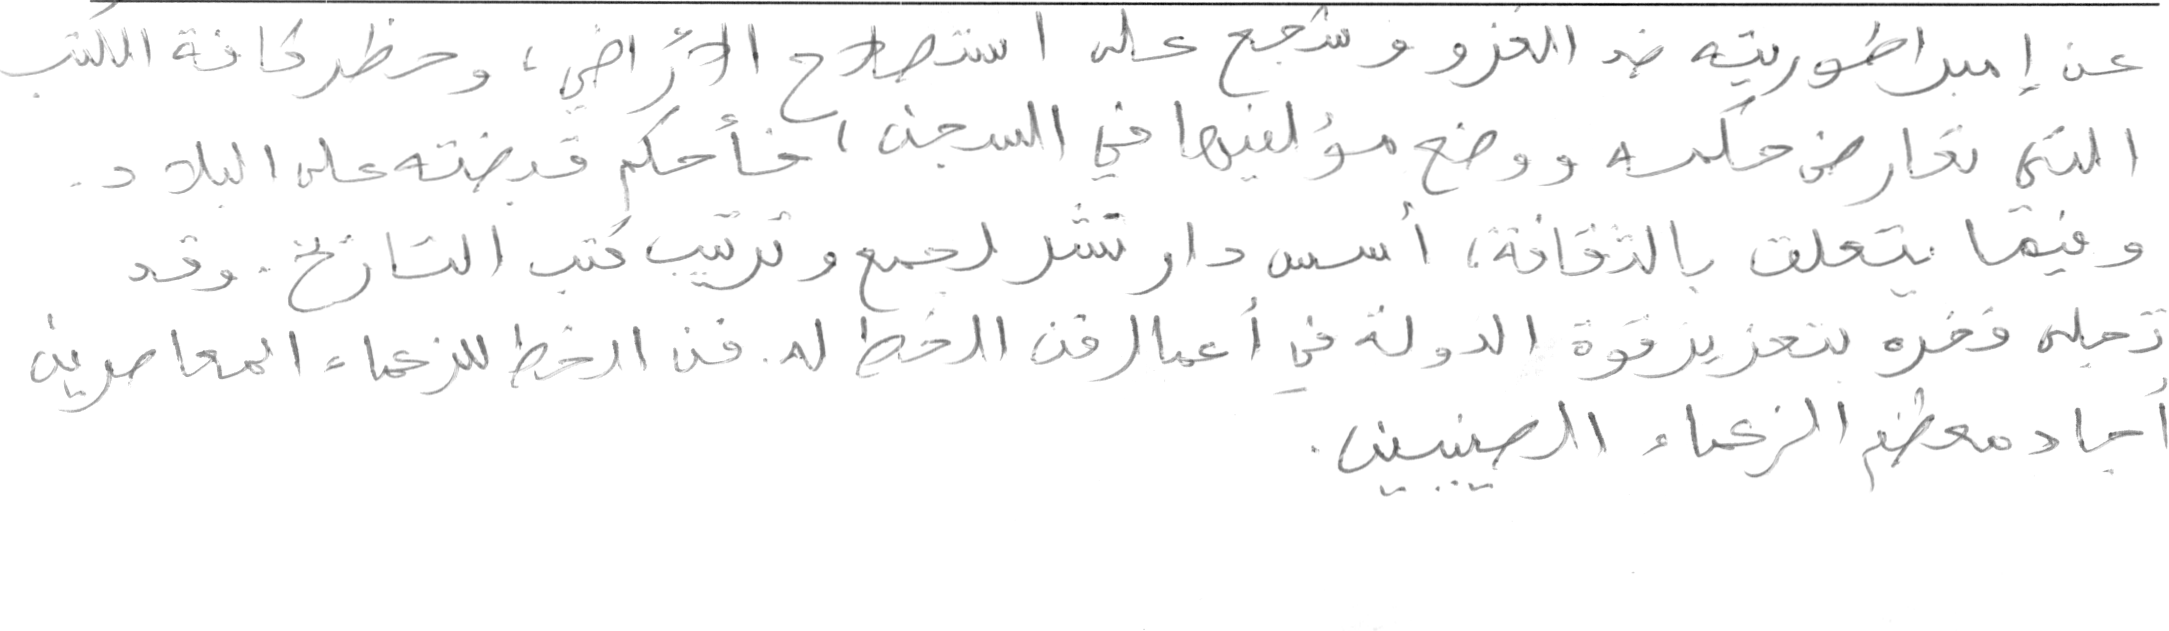 عن إمبراطوريته ضد الغزو وشجع على استصلاح الأراضي، وحظر كافة الكتب
التي تعارض حكمه ووضع مؤلفيها في السجن، فأحكم قبضته على البلاد.
وفيما يتعلق بالثقافة، أسس دار نشر لجمع وترتيب كتب التاريخ. وقد
تجلى فخره بتعزيز قوة الدولة في أعمال فن الخط له. فن الخط للزعماء المعاصرين
أجاد معظم الزعماء الصينيين.